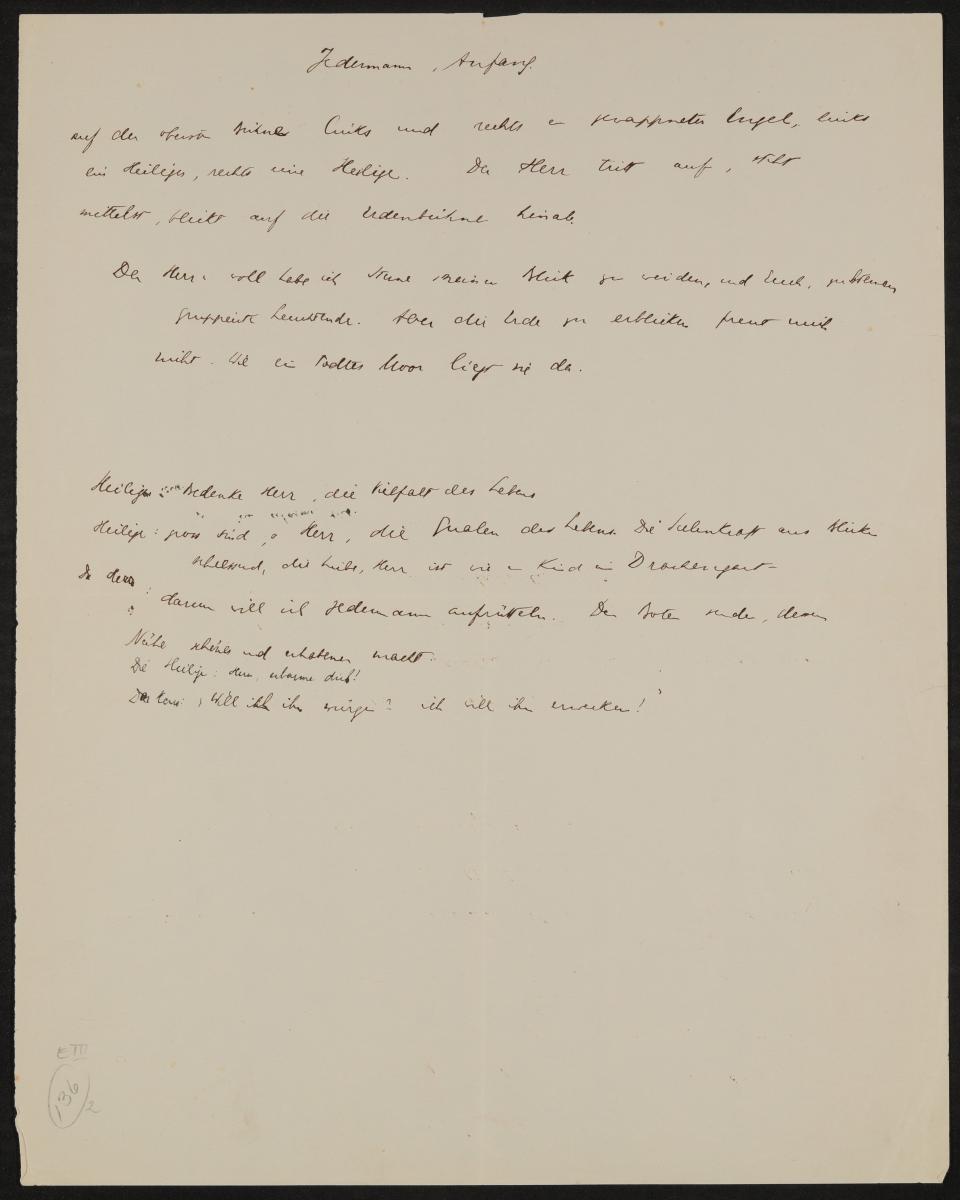 Jedermann, Anfang.
auf der obern Bühne links und rechts ein gewappneter Engel, links
ein Heiliger, rechts eine Heilige. Der Herr tritt auf, steht
mittelst, blickt auf die Erdenbühne hinab.
Der Herr: wohl habe ich Sterne meinen Blick zu weiden, und Euch,
Leuchtende. Aber die Erde zu erblicken freut mich
nicht. Wie ein todtes Moor liegt sie da.
Heiliger: Bedenke Herr, die Vielfalt des Lebens
Heilige: gross sind, o Herr, die Qualen des Lebens. Die Sehnkraft aus Blicken
die Liebe, Herr ist wie ein Kind im
Der Herr:
darum will ich Jedermann aufrütteln. Den Boten sende, dessen
Nähe schönes und erhabenes macht.
Die Heilige: Herr, erbarme dich!
Der Herr: Will ich ihn würgen? ich will ihn erwecken!
E III
136
2